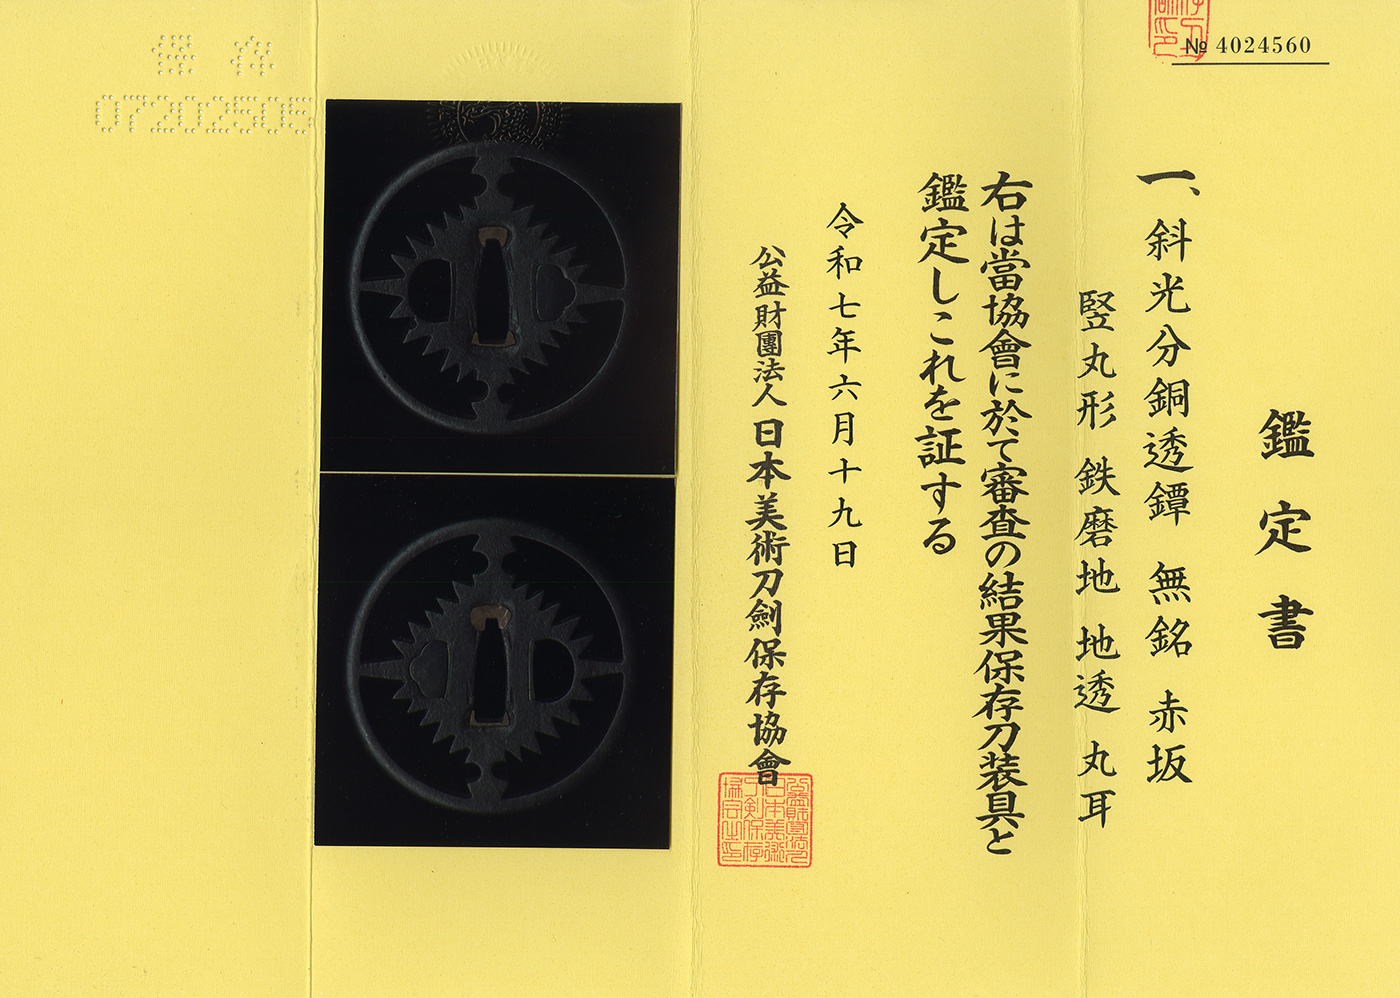 № 4024560
鑑定書
一、斜光分銅透鐔 無銘 赤坂
竪丸形 鉄磨地 地透 丸耳
右は當協會に於て審査の結果保存刀装具と
鑑定しこれを証する
令和七年六月十九日
公益財團法人 日本美術刀劍保存協會
保存
07202506